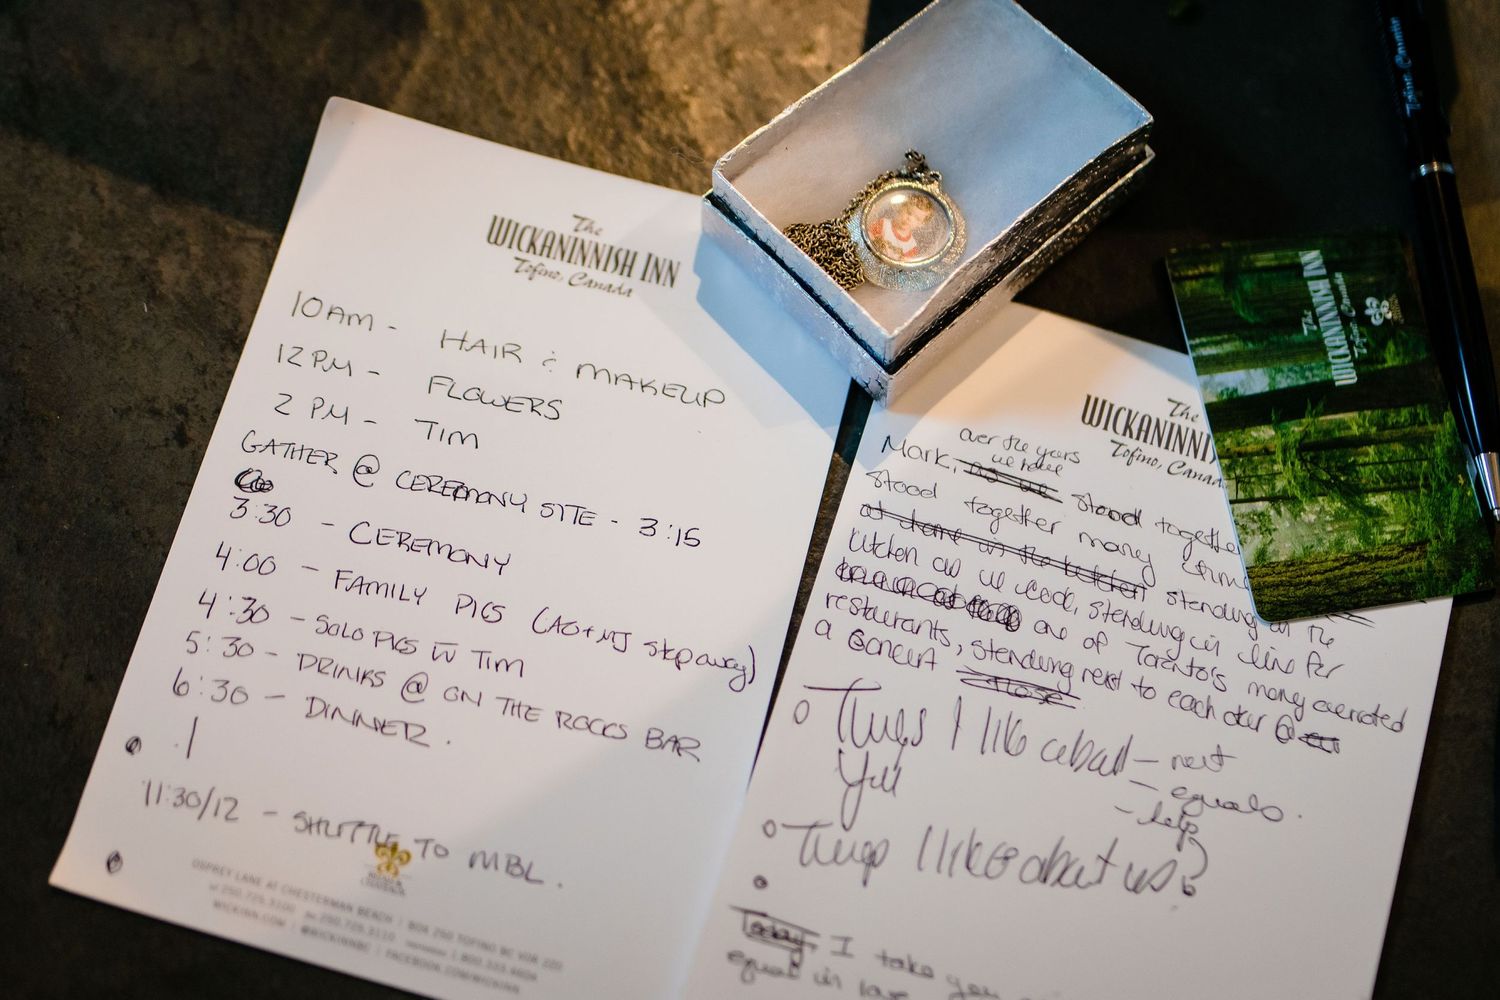 The
WICKANINNISH INN
Tofino, Canada
10AM - HAIR & MAKEUP
12 PM - FLOWERS
2 PM - TIM
GATHER @ CEREMONY SITE - 3:15
3:30 - CEREMONY
4:00 - FAMILY PICS (AO+MJ step away)
4:30 - SOLO PICS W TIM
5:30 - DRINKS @ ON THE ROCKS BAR
6:30 - DINNER.
11:30/12 - SHUTTLE TO MBL.
OSPREY LANE AT CHESTERMAN BEACH | BOX 250 TOFINO BC V0R 2Z0
250.725.3100 250.725.3110 1.800.333.4604
WICKINN.COM | @WICKINNBC | FACEBOOK.COM/WICKINN
The
WICKANINNI
Tofino, Canada
over the years
we have
Mark, stood together
stood together many times
at home in the kitchen standing in the
kitchen as we cook, standing in line for
one of Toronto's many overrated
restaurants, standing next to each other @
a concert
Things I like about - rest
You - equals.
- help
Things I like about us?
Today I take you
equal in
The
WICKANINNISH INN
Tofino, Canada
Tofino, Canada